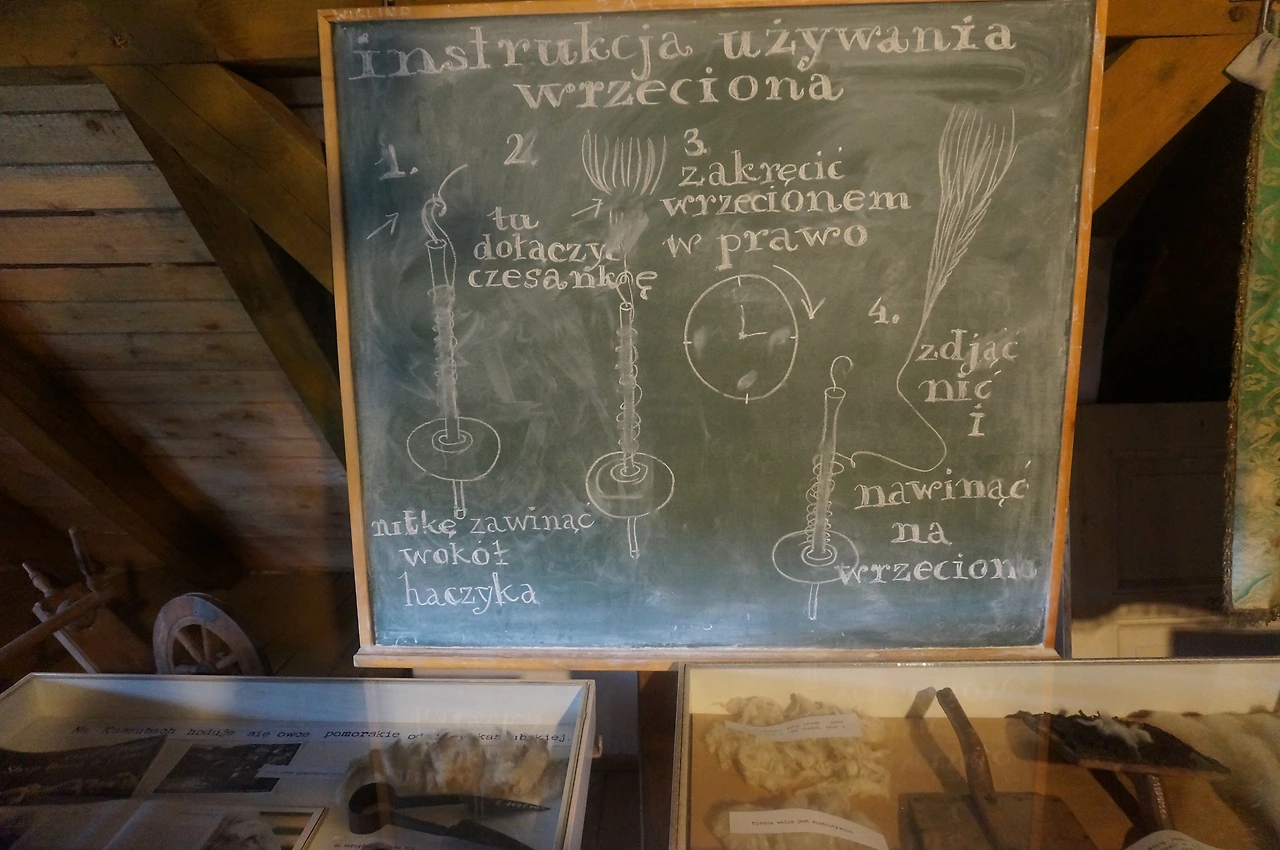 instrukcja używania
wrzeciona
1.
nitkę zawinąć
wokół
haczyka
2.
tu
dołączyć
czesankę
3.
zakręcić
wrzecionem
w prawo
4.
zdjąć
nić
i
nawinąć
na
wrzeciono
Na Kaszubach hoduje się owce pomorskie